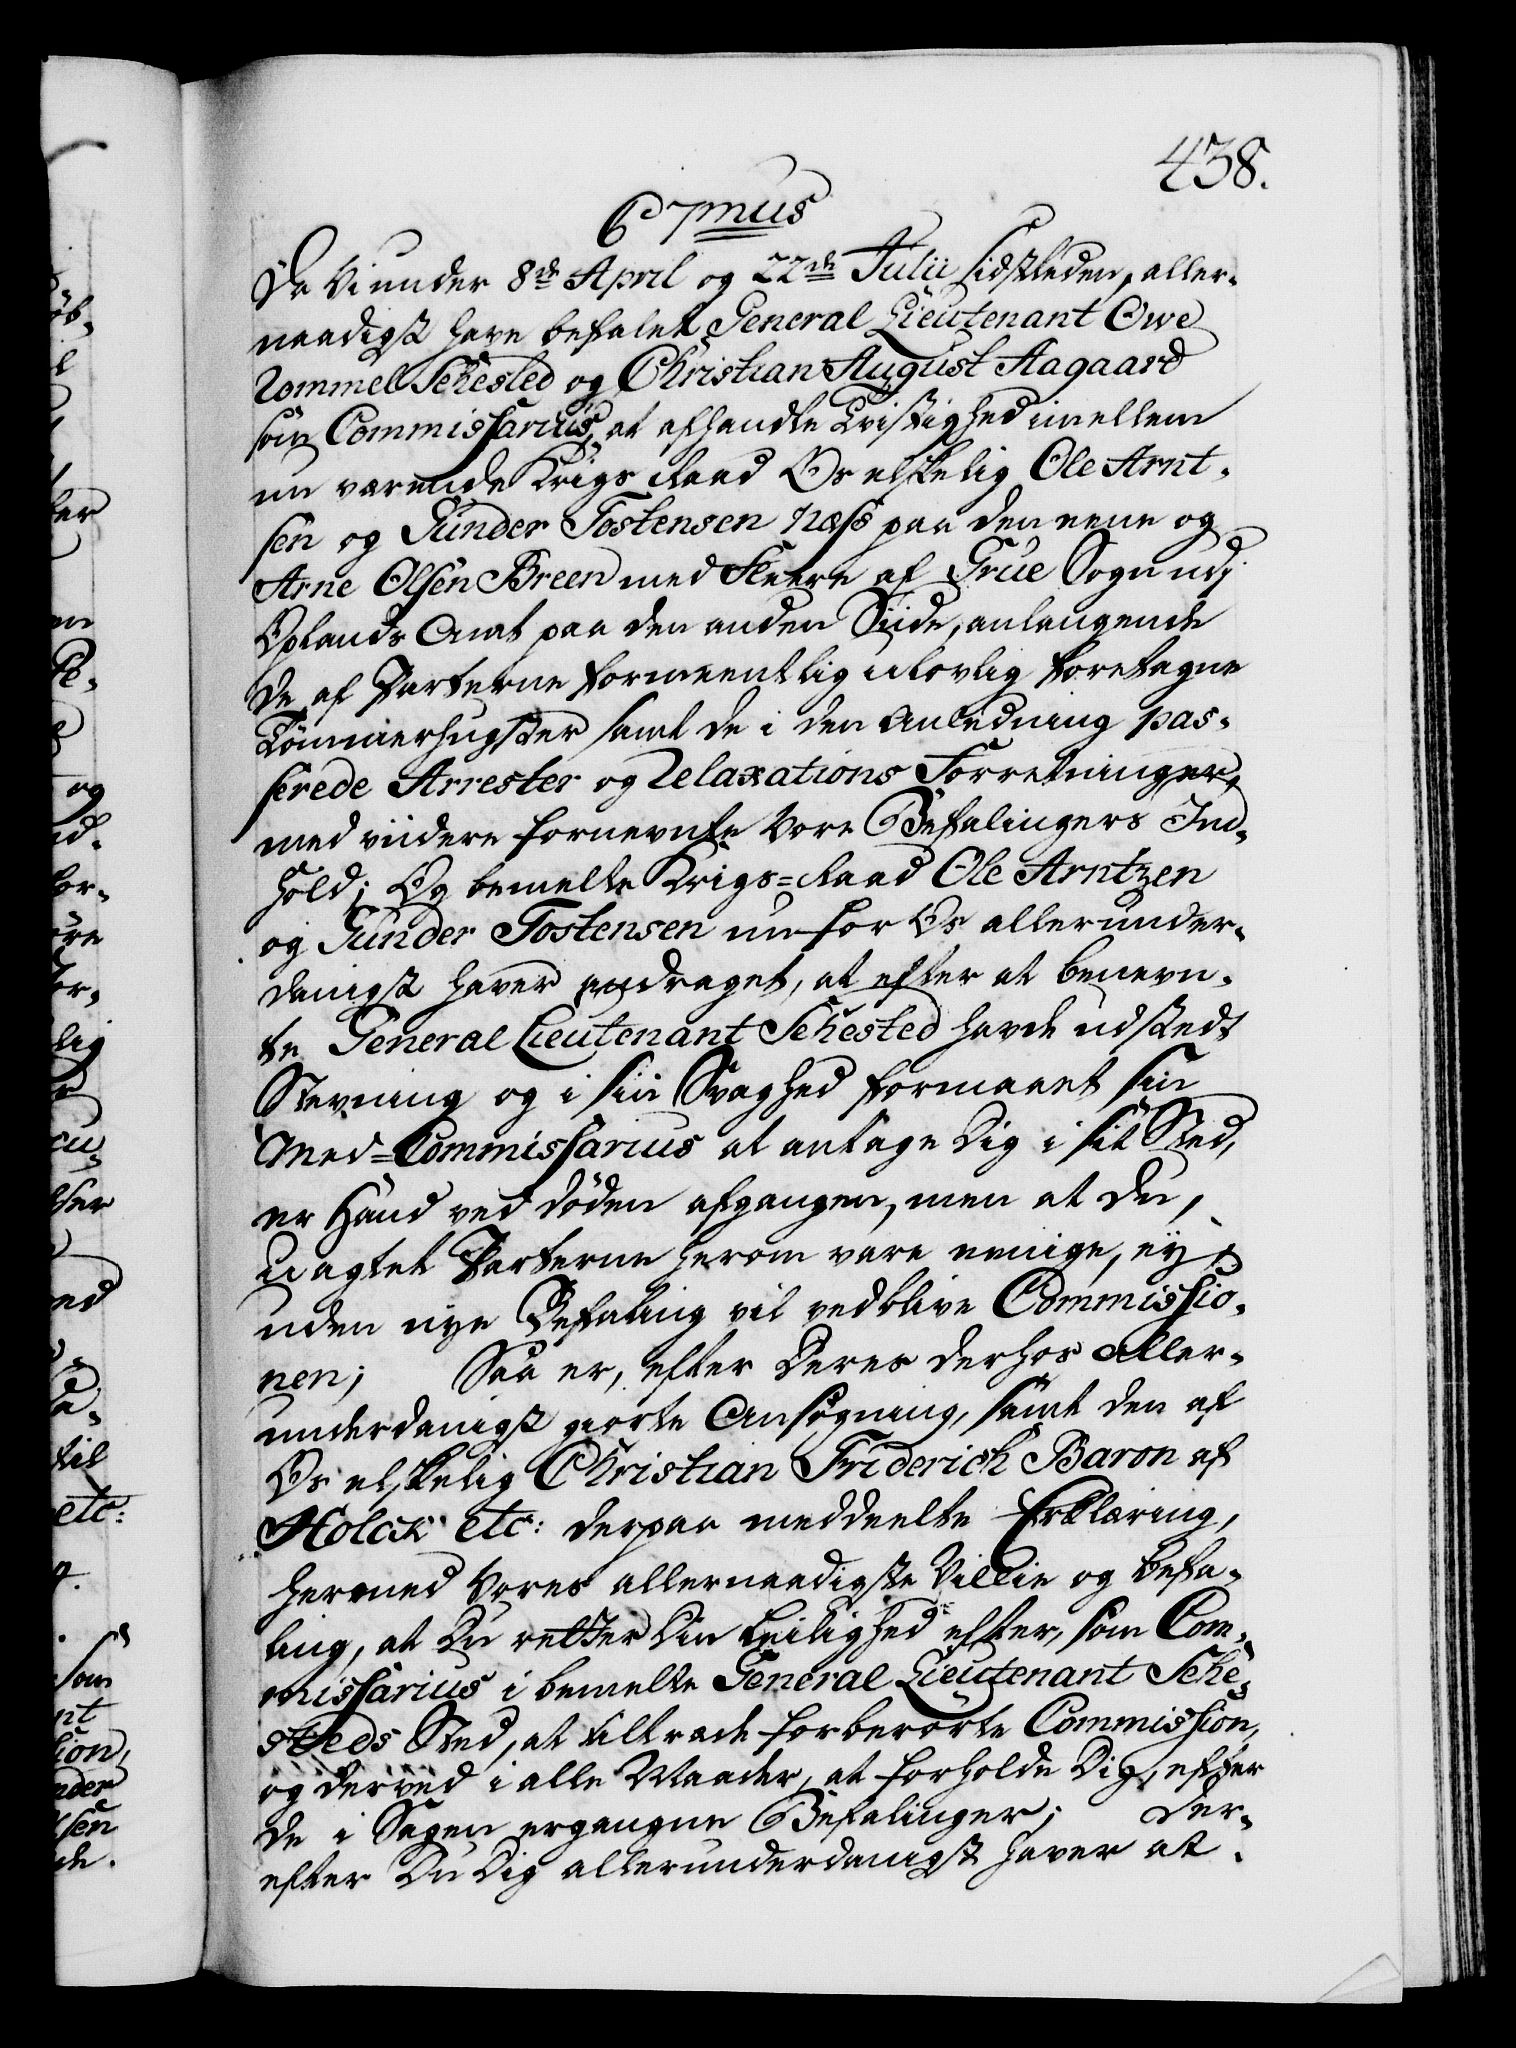 438.
C 7mus
Da Vi under 8de April og 22de Julii sidstleden, aller-
naadigst have befalet General Lieutenant Owe
Rommel Sehested og Christian August Aagaard
som Commissarius, at afhandle Tvistighed imellem
nu værende Krigs Raad Os elskelig Ole Arnt-
sen og Gunder Tostensen Næss paa den eene og
Arne Olsen Breen med fleere af Grue Sogn udj
Oplands Amt paa den anden Siide, anlangende
de af Parterne formeentlig ulovlig foretagne
Tømmerhugster samt de i den Anledning pas-
serede Arrester og Relaxations Forretninger,
med viidere fornevnte Vore Befalingers Ind-
hold; Og bemelte Krigs-Raad Ole Arntzen
og Gunder Tostensen nu for Os allerunder-
danigst haver andraget, at efter at benevn-
te General Lieutenant Sehested havde udstedt
Stevning og i sin Svaghed formaaet sin
Med-Commissarius at antage Dig i sit Sted,
er Hand ved døden afgangen, men at du,
uagtet Parterne herom vare eenige, ey
uden nye Befaling vil vedblive Commissio-
nen; Saa er, efter Deres derhos aller-
underdanigst giorte Ansøgning, samt den af
Os elskelig Christian Friderich Baron af
Holck etc: derpaa meddeelte Erklæring,
hermed Vores allernaadigste Villie og befa-
ling, at Du retter Din Leilighed efter, som Com-
missarius i bemelte General Lieutenant Sehe-
steds Sted, at tiltræde forberørte Commission,
og derved i alle Maader, at forholde Dig, efter
de i Sagen ergangne Befalinger; Der-
efter Du Dig allerunderdanigst haver at